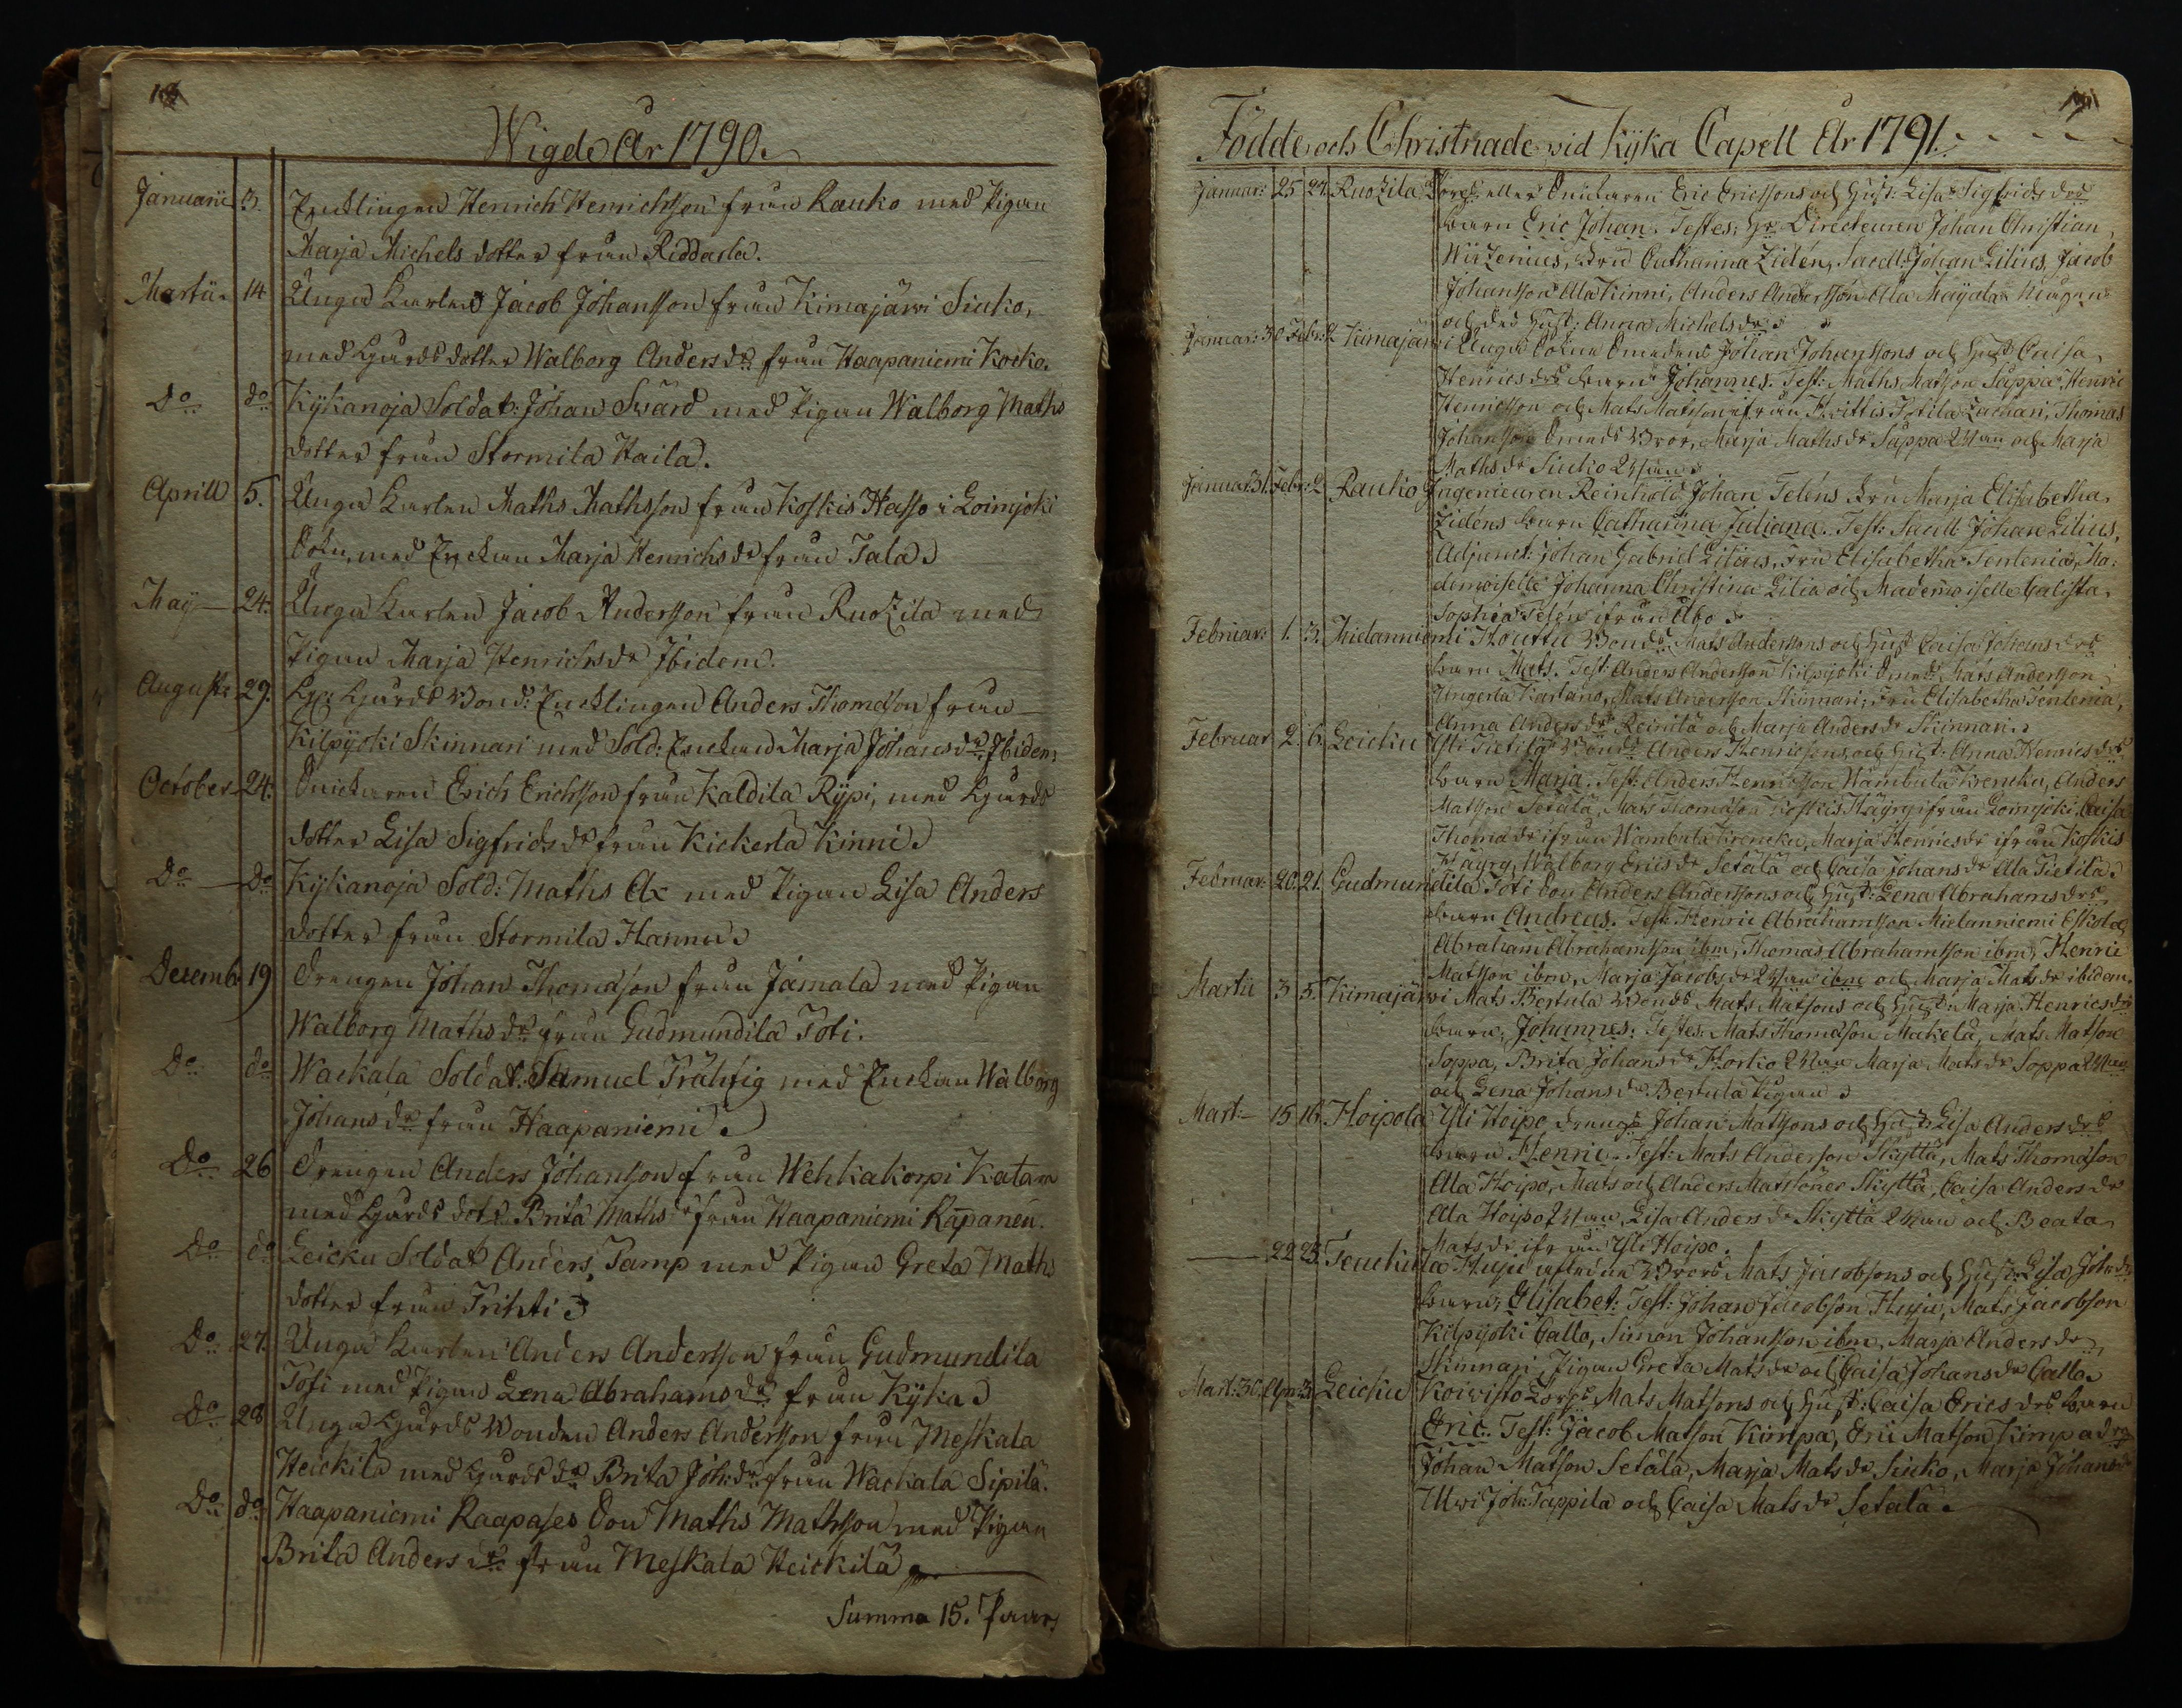 Wigde År 1790.
Januarii 3. Enklingen Henrich Henrichsson från Rauko med Pigan
Marja Michels dotter från Riddarla.
Martii 14 Unga Karlen Jacob Johansson från Kimajärwi Siuko,
med Gårds dotter Walborg Anders dr från Haapaniemi Kocko.
Do do Kÿkanoja Soldat: Johan Swärd med Pigan Walborg Maths
dotter från Stormila Haila.
Aprill 5. Unga Karlen Maths Mathsson från Koskis Hasso i Loimjoki
Sokn, med Enckan Marja Henrichs dr från Tala.
Maÿ 24. Unga Karlen Jacob Andersson från Ruokila med
Pigan Marja Henrichs dr Ibidem.
Augusti 29. Gårds Bond: Encklingen Anders Thomasson från
Kilpijoki Skinnari med Sold: Enckan Marja Johans dr Ibidem
October 24. Snickaren Erich Erichsson från Kaldila Rÿpi, med Gårds
dotter Lisa Sigfrids dr från Kickerla Kinni.
Do Do Kÿkanoja Sold: Maths Ax med Pigan Lisa Anders
dotter från Stormila Hannu.
Decemb. 19 Drengen Johan Thomasson från Jamala med Pigan
Walborg Maths dr från Gudmundila Toti.
Do do Wackala Soldat: Samuel Trähtig med Enckan Walborg
Johans dr från Haapaniemi.
Do 26 Drengen Anders Johansson från Wehkakorpi Katan
med Gårds dott. Brita Maths dr från Haapaniemi Rapaneu.
Do do Leicku Soldat Anders Tamp med Pigan Greta Maths
dotter från Trihti
Do 27. Unga Karlen Anders Andersson från Gudmundila
Toti med Pigan Lena Abrahams dr från Kÿka
Do 28 Unga Gårds Bonden Anders Andersson från Meskala
Heickilä med Gårds dr Brita Joh: dr från Wackala Sipilä.
Do do Haapaniemi Raapases Son Maths Mathsson med Pigan
Brita Anders dr från Meskala Heickilä
Summa 15. Paar
Födde och Christnade wid Kÿka Capell År 1791.
Januar: 25 27. Ruokila Eric Ericssons och Hust: Lisa Sigfrids drs
barn Eric Johan. Testes: Hr Directeuren Johan Christian
Wirzenius, Fru Catharina Zidén, Sacell: Johan Lilius, Jacob
Johansson Ala Kinni, Anders Andersson Ala Maÿala Drängen
och des Hust: Anna Michels dr
Januar: 30 Febr: 2 Kimajärwi Unga Sokne Smedens Johan Johanssons och Hust Caisa
Henrics drs barn Johannes. Test: Maths Matsson Sappa, Henric
Henricsson och Mats Matsson ifrån Hwittis Sotila Zachari, Thomas
Johansson Smeds Bror, Marja Maths dr Sappa Pigan och Marja
Maths dr Siuko Pigan
Januar 31. Febr: 2 Rauko Ingenieuren Reinhold Johan Teléns Fru Marja Elisabetha
Zidéns barn Catharina Juliana. Test: Sacell Johan Lilius,
Adjunct: Johan Gabriel Lilius, Fru Elisabetha Tentenia, Ma-
demoiselle Johanna Christina Lilia och Mademoiselle Calista
Sophia Telén ifrån Åbo
Februar: 1. 3. Mielanniemi Kouttu Bondes Mats Anderssons och Hust Caisa Johans drs
barn Mats. Test: Anders Andersson Kilpijoki Smed, Mats Andersson
Ungerla Kartano, Mats Andersson Skinnari, Fru Elisabetha Tentenia,
Anna Anders dr Reinilä och Marja Anders dr Skinnari.
Februar 2. 6. Leicku Ÿli Tietilä Bonds Anders Henricssons och Hust: Anna Henrics drs
barn Marja. Test: Anders Henricsson Wambula Krencku, Anders
Matsson Setälä, Mats Thomasson Koskis Häÿrÿ ifrån Loimjoki, Caisa
Thoma dr ifrån Wambula Krencku, Marja Henrics dr ifrån Koskis
Häÿrÿ, Walborg Erics dr Setälä och Caisa Johans dr Ala Tietilä.
Februar. 20. 21. Gudmundila Toti Son Anders Anderssons och Hust: Lena Abrahams drs
barn Andreas. Test: Henric Abrahamsson Mielanniemi Eskola,
Abraham Abrahamsson ibm, Thomas Abrahamsson ibm, Henric
Matsson ibm, Marja Jacobs dr Pigan ibm och Marja Mats dr ibidem.
Martii 3 5. Kimajärwi Mats Bertula Bonds Mats Matsons och Hust: Marja Henrics drs
barn, Johannes. Testes: Mats Thomasson Mäkelä, Mats Matson
Soppa, Brita Johans dr Horko Pigan Marja Mats dr Soppa Pigan
och Lena Johans dr Bertula Pigan
Mart: 15 16. Hoipola Ÿli Hoipo Drengs Johan Matssons och Hust: Lisa Anders drs
barn Henric. Test: Mats Anderson Skÿttä, Mats Thomasson
Ala Hoipo, Mats och Anders Matssöner Skÿttä, Caisa Anders dr
Ala Hoipo Pigan, Lisa Anders dr Skÿttä Pigan och Beata
Mats dr ifrån Ÿli Hoipo.
22 23. Mats Jacobsons och Hust: Lisa Joh: drs
barn, Elisabet: Test: Johan Jacobson Huju, Mats Jacobson
Kilpijoki Gallo, Simon Johansson ibm, Marja Anders dr
Skinnari, Pigan Greta Mats dr och Caisa Johans dr Gallo
Mart: 30. Apr: 3. Leicku Koiwisto Mats Matsons och Hust: Caisa Erics drs barn
Eric. Test: Jacob Matson Kimpa, Eric Matson Kimpa
Johan Matson Setälä, Marja Mats dr Siuko, Marja Johans dr
Ulwi Joh: Tappila och Caisa Mats dr Setälä.